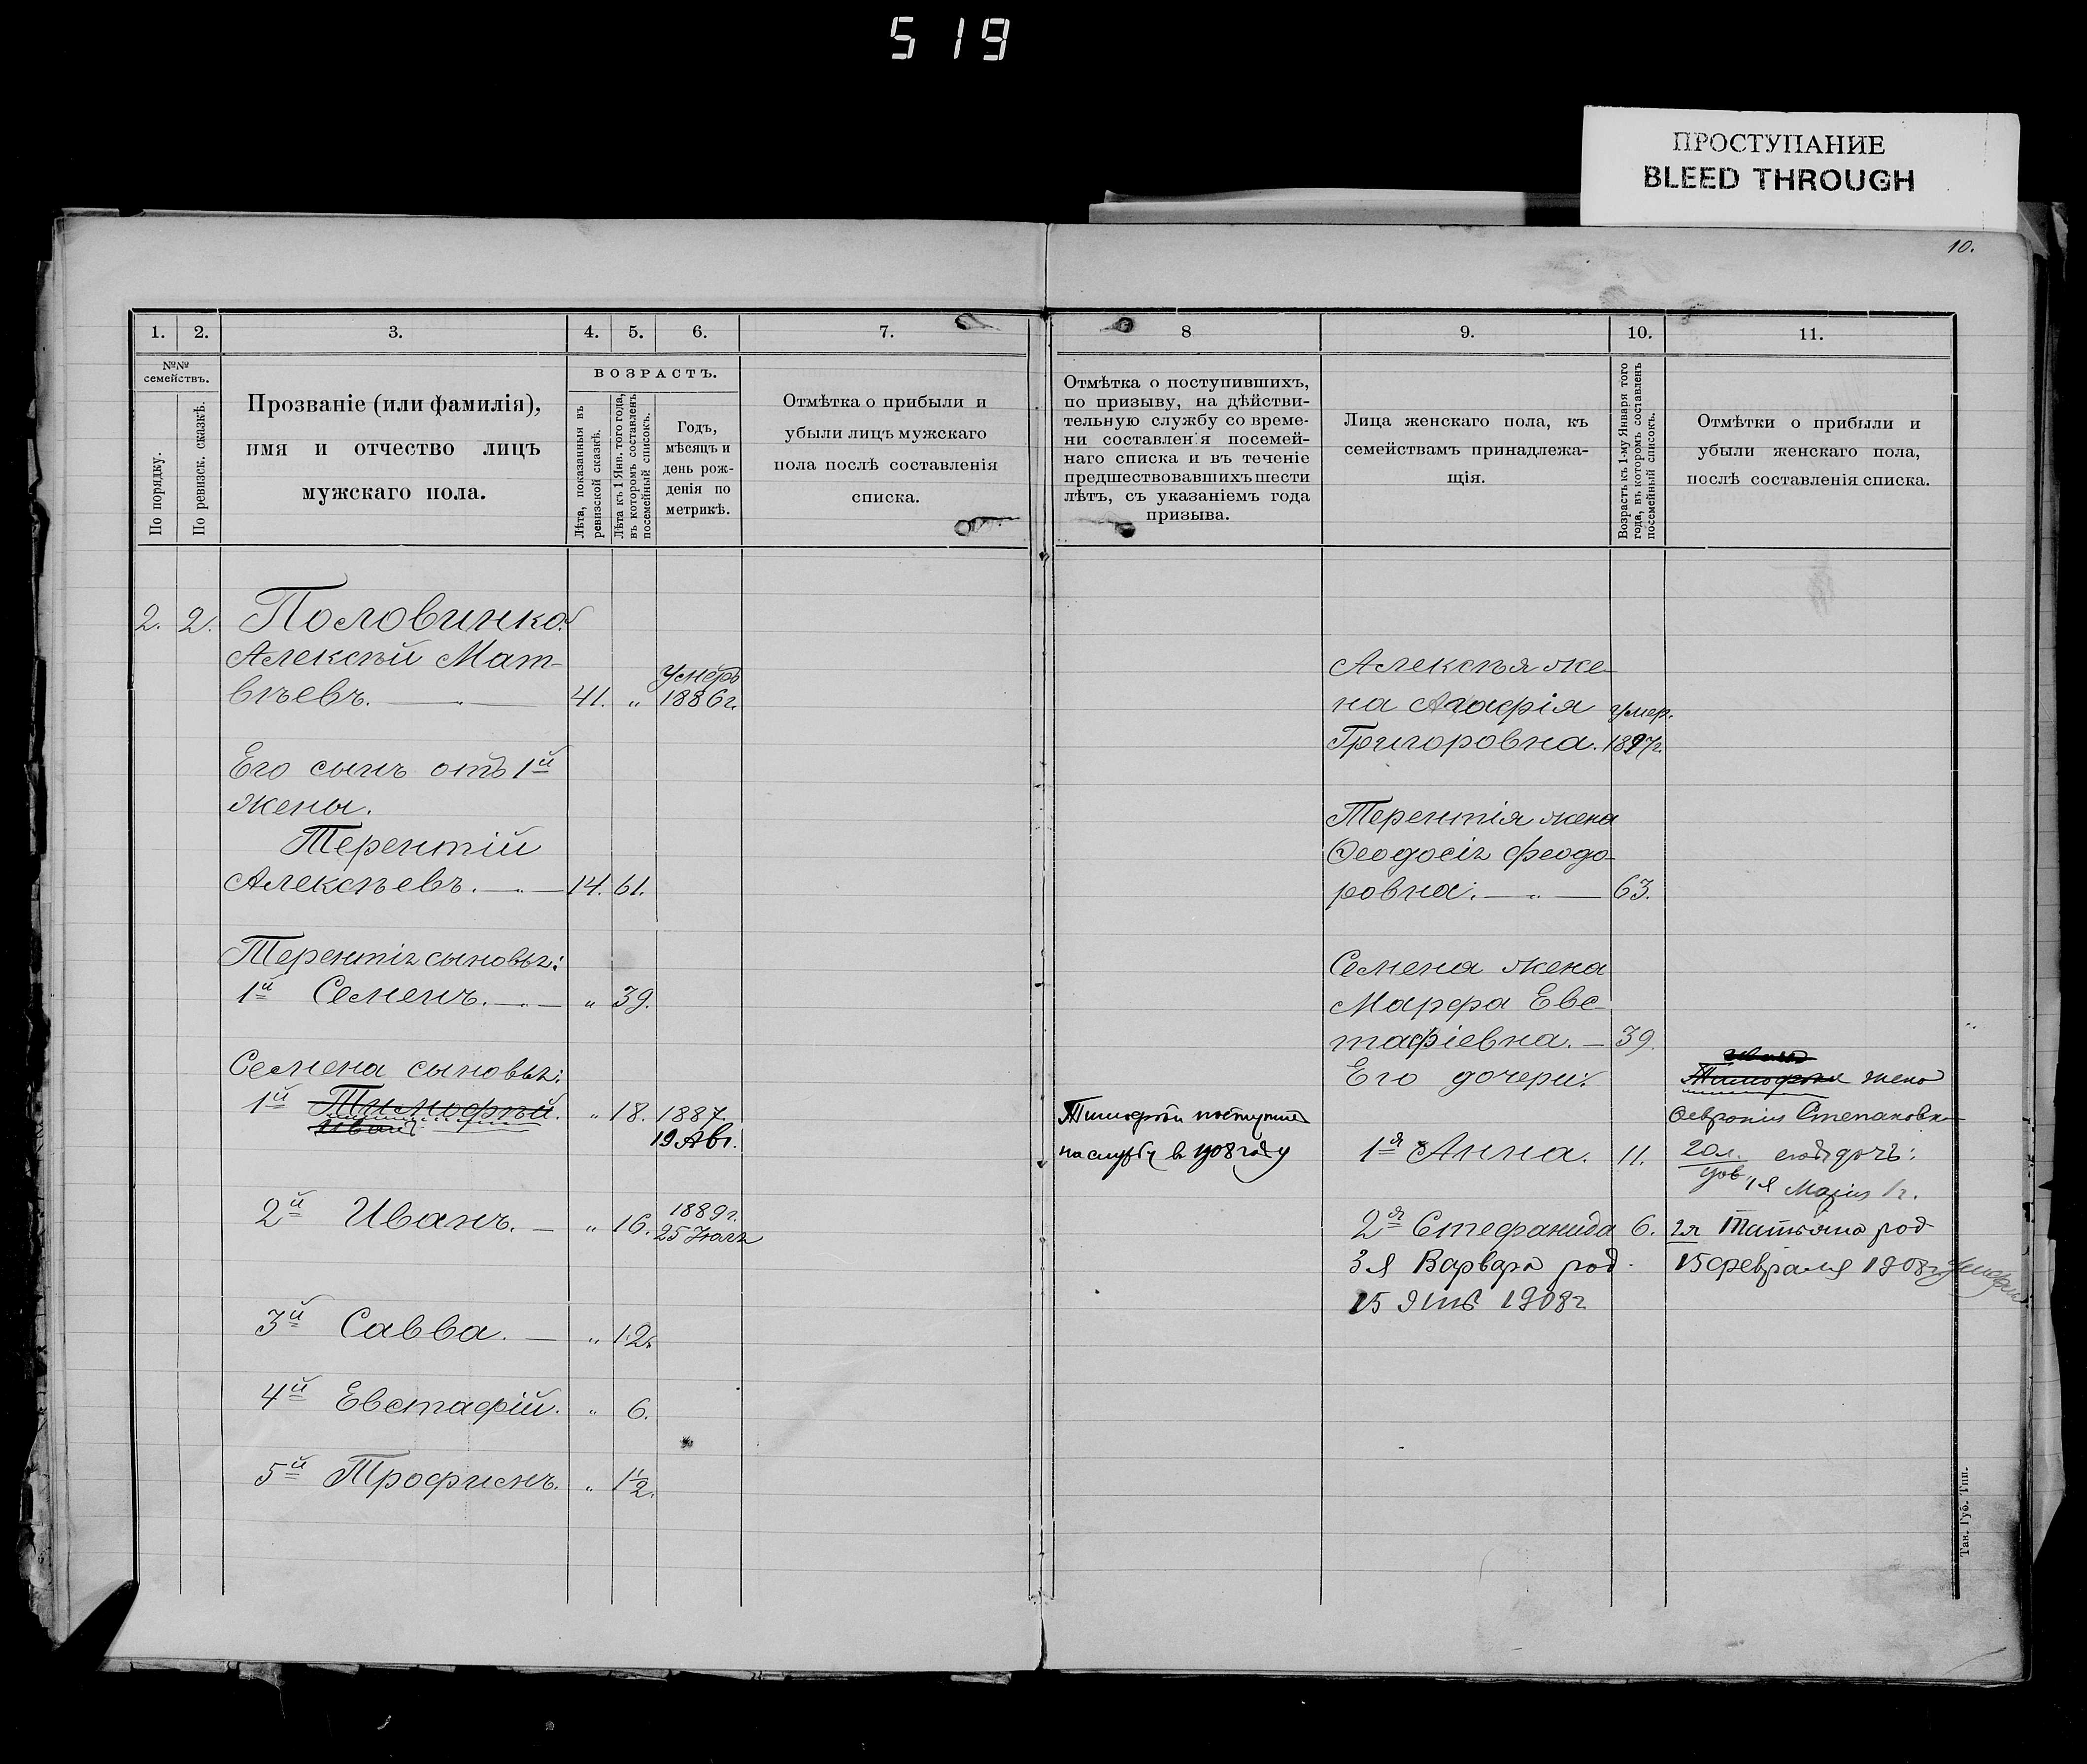 519
ПРОСТУПАНИЕ
BLEED THROUGH
10.
1. 2. 3. 4. 5. 6. 7.
№№ семействъ.
По порядку.
По ревизск. сказкѣ.
Прозваніе (или фамилія),
имя и отчество лицъ
мужскаго пола.
ВОЗРАСТЪ.
Лѣта, показанныя въ
ревизской сказкѣ.
Лѣта къ 1 Янв. того года,
въ которомъ составленъ
посемейный списокъ.
Годъ,
мѣсяцъ и
день рож-
денія по
метрикѣ.
Отмѣтка о прибыли и
убыли лицъ мужскаго
пола послѣ составленія
списка.
2. 2. Половинко
Алексѣй Мат-
вѣевъ. 41. „ Умеръ 1886 г.
Его сынъ отъ 1й
жены.
Терентій
Алексѣевъ. 14. 61.
Терентія сыновья:
1й Семенъ. „ 39.
Семена сыновья:
1й Тимофѣй. „ 18. 1887.
Иванъ 19 Авг.
2й Иванъ. „ 16. 1889 г.
25 Іюля
3й Савва. „ 12.
4й Евстафій. „ 6.
5й Трофимъ. „ 1½.
8 9. 10. 11.
Отмѣтка о поступившихъ,
по призыву, на дѣйстви-
тельную службу со време-
ни составленія посемей-
наго списка и въ теченіе
предшествовавшихъ шести
лѣтъ, съ указаніемъ года
призыва.
Лица женскаго пола, къ
семействамъ принадлежа-
щія.
Возрастъ къ 1-му Января того
года, въ которомъ составленъ
посемейный списокъ.
Отмѣтки о прибыли и
убыли женскаго пола,
послѣ составленія списка.
Алексѣя же-
на Агафія умер.
Григоровна. 1897 г.
Терентія жена
Ѳеодосія Феодо-
ровна. 63.
Семена жена
Марфа Евс-
тафіевна. 39.
Его дочери:
1я Анна. 11.
2я Стефанида 6.
3я Варвара род.
15 1908 г
Тимофѣй поступилъ
на службу в 1908 году
Тимофея жена
Февронія Степановна
20 л. его дочь:
1я Марія 1 г.
2я Татьяна род
15 февраля 1908 г умерла
Тав. Губ. Тип.